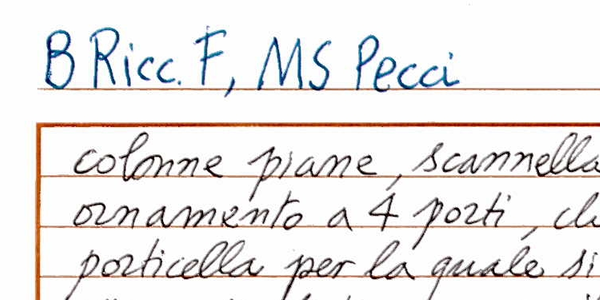 B Ricc. F, MS Pecci
colonne piane, scannella
ornamento a 4 porti, ch
porticella per la quale si